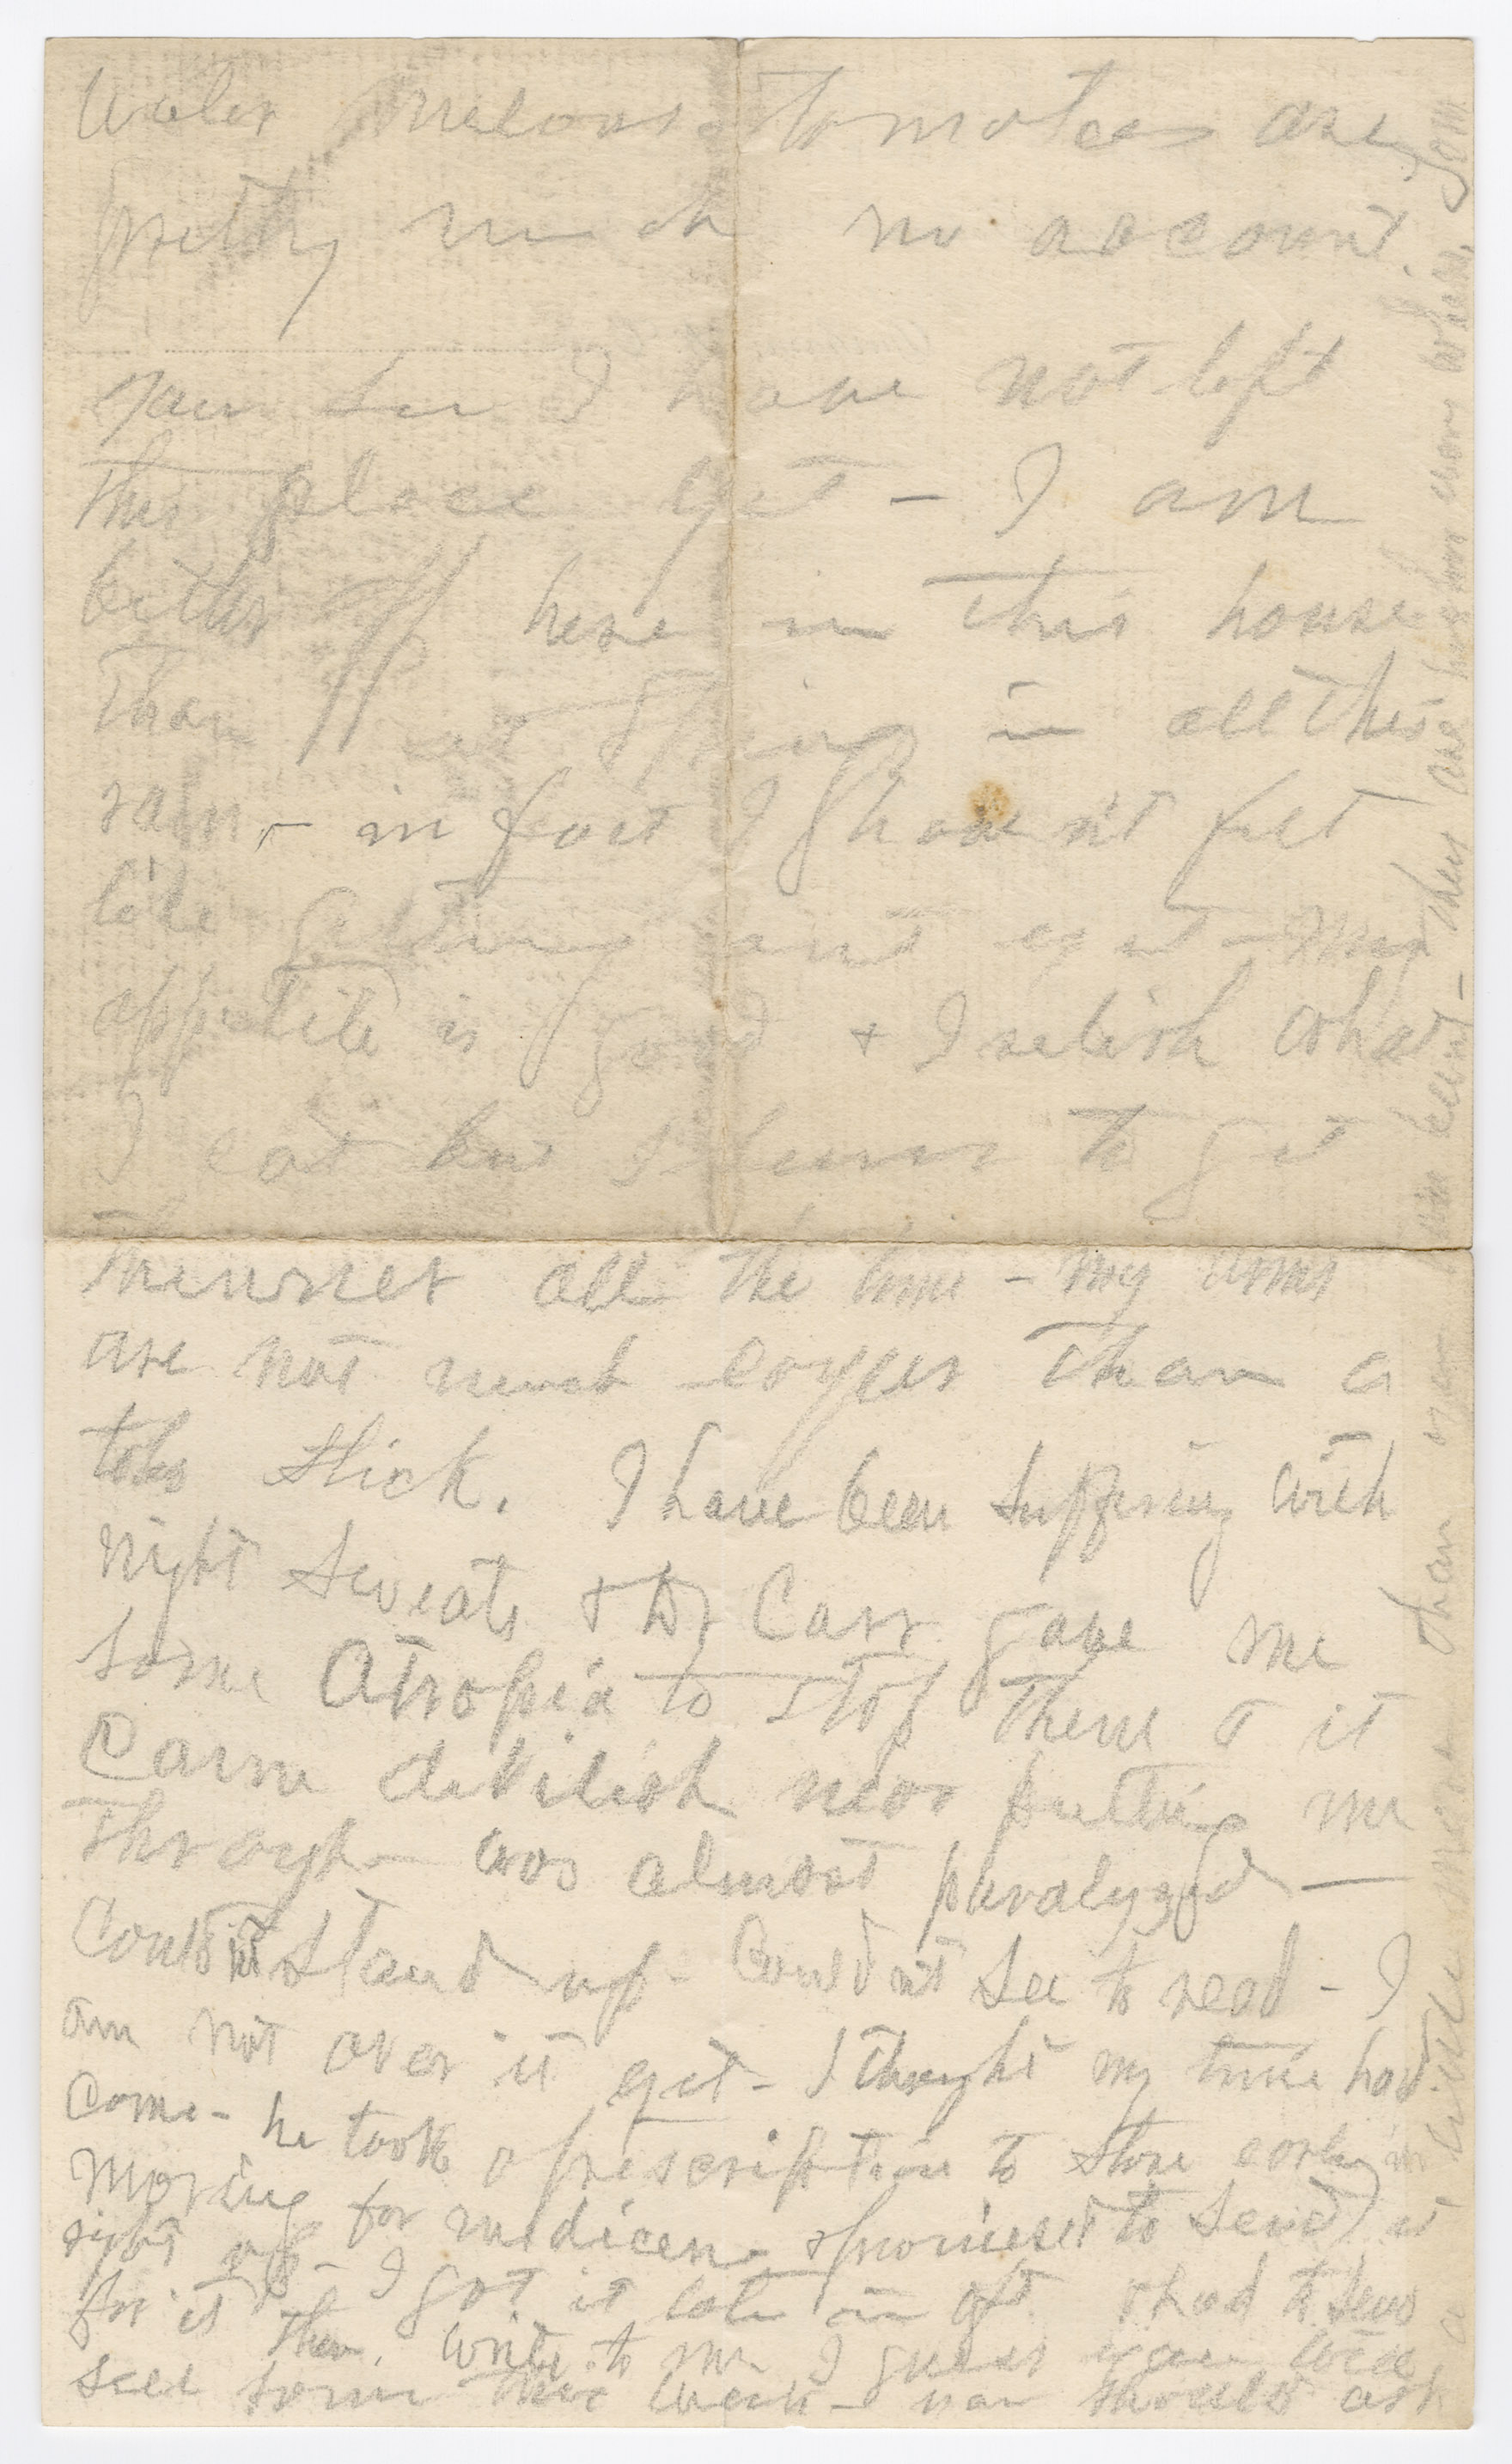 Water Melons. tomatoes are
pretty much no account.
You see I have not left
this place yet - I am
better off here in this house
than at Spring in all this
rain - in fact I haven't felt
like getting out yet - my
appetite is good & I relish what
I eat but I seem to get
thinner all the time - my arms
are not much larger than a
tobo stick. I have been suffering with
night sweats & Dr Carr gave me
some Atropia to stop them & it
came devilish near putting me
through - was almost paralyzed -
Couldn't stand up - Couldn't see to read - I
am not over it yet - I thought my time had
come - he took a prescription to store early in
morning for medicen & promised to send it
right up - I got it late in aft & had to send
for it then. Write to me I guess you will
sell some this week - you should ask
a little more than even you will sell at - they are higher every where. Tom